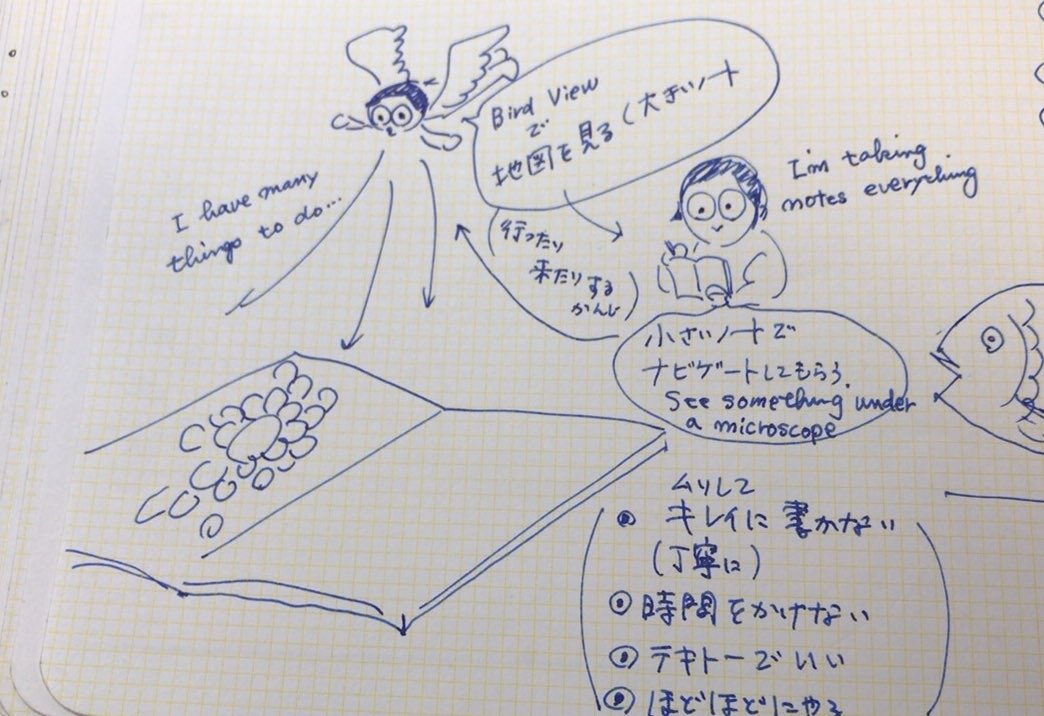 Bird View
で
地図を見る(大きいノート
I'm taking
notes everything
I have many
things to do...
(行ったり
来たりする
かんじ)
小さいノートで
ナビゲートしてもらう.
See something under
a microscope
ムリして
キレイに書かない
(丁寧に)
時間をかけない
テキトーでいい
ほどほどにやる